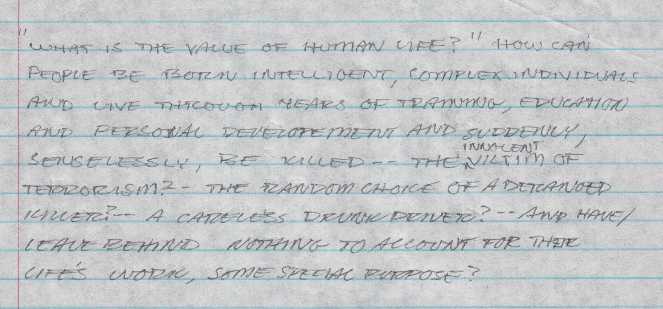 "WHAT IS THE VALUE OF HUMAN LIFE?" HOW CAN
PEOPLE BE BORN INTELLIGENT, COMPLEX INDIVIDUALS
AND LIVE THROUGH YEARS OF TRAINING, EDUCATION
AND PERSONAL DEVELOPEMENT AND SUDDENLY,
INNOCENT
SENSELESSLY, BE KILLED -- THE VICTIM OF
TERRORISM? - THE RANDOM CHOICE OF A DERANGED
KILLER? -- A CARELESS DRUNK DRIVER? -- AND HAVE/
LEAVE BEHIND NOTHING TO ACCOUNT FOR THEIR
LIFE'S WORK, SOME SPECIAL PURPOSE?